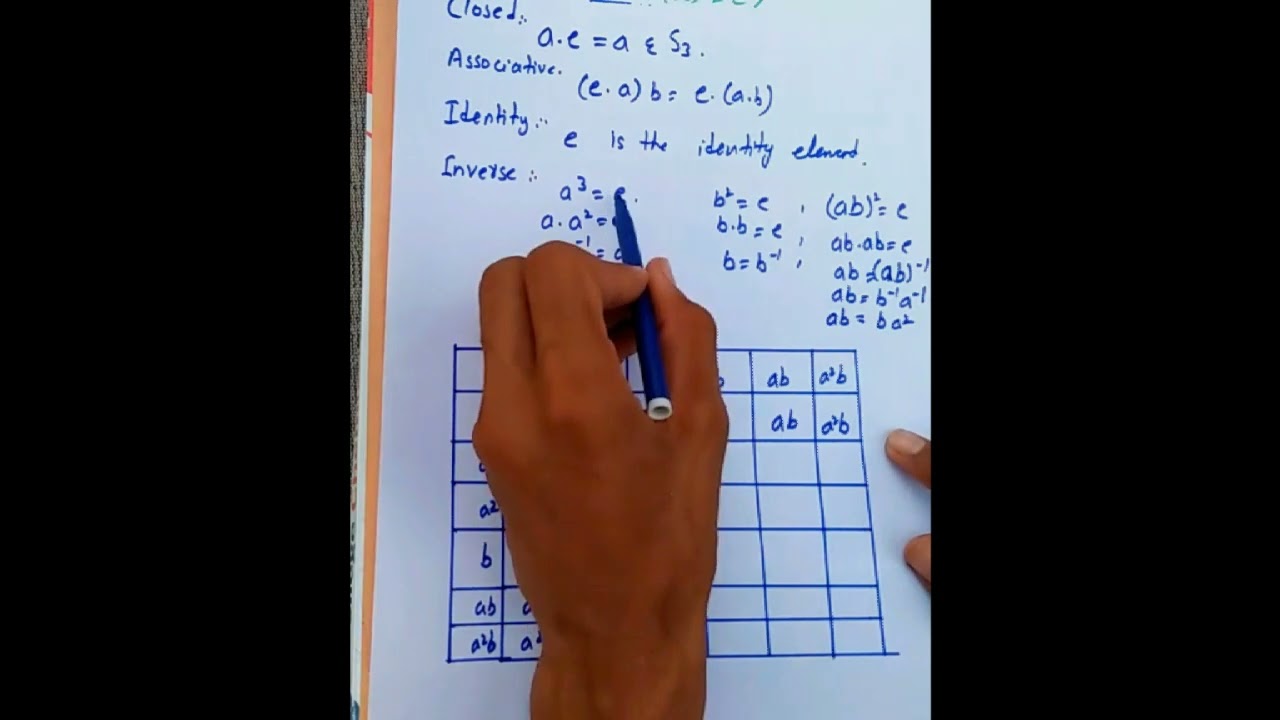 Closed:.
a.e = a ε S₃.
Associative.
(e.a) b = e.(a.b)
Identity:.
e is the identity element.
Inverse:.
a³ = e. b² = e , (ab)² = e
a.a² = b.b = e , ab.ab = e
⁻¹ = b = b⁻¹ , ab = (ab)⁻¹
ab = b⁻¹a⁻¹
ab = ba²
ab a²b
ab a²b
a²
b
ab
a²b